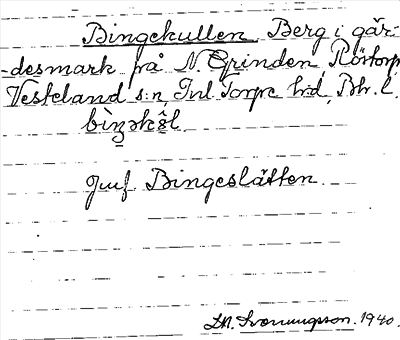 Bingekullen Berg i gär-
-desmark på N. Grinden, Rörtorp
Vesteland s:n, Inl. Torpe hd, Bhr. l.
bìŋəkŏ́l
Jmf Bingeslätten.
1940.